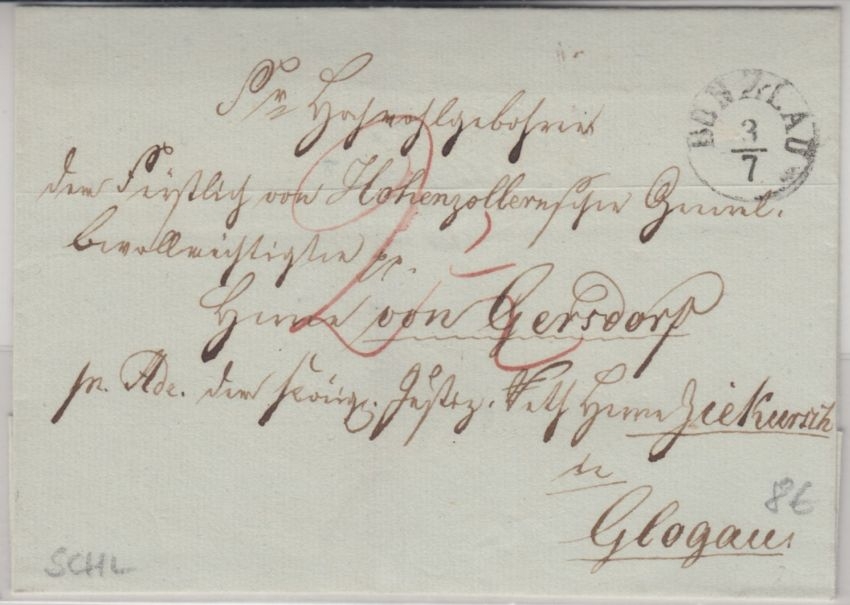 BUNZLAU
3
7
Sr Hochwohlgebohren
dem Fürstlich von Hohenzollernschen General.
bevollmächtigten pp.
Herrn von Gersdorf
pr. Adr. dem Königl. Justiz. Rath Herrn Ziekursch
in
Glogau.
8€
SCHL